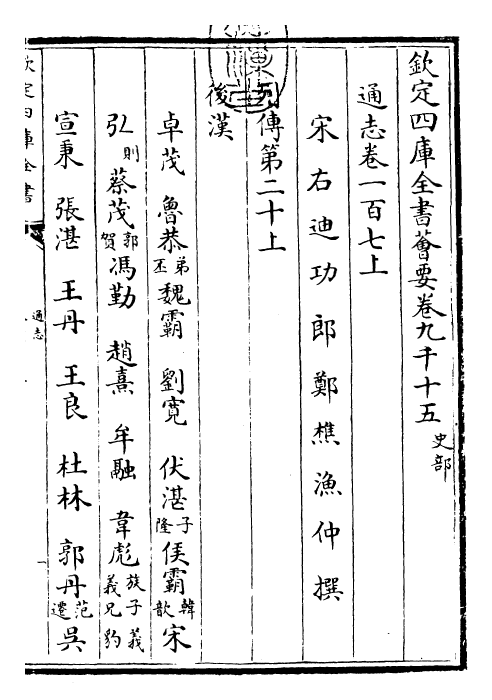 欽定四庫全書薈要卷九千十五 史部
通志卷一百七上
宋右迪功郎鄭樵漁仲撰
列傳第二十上
後漢
卓茂 魯恭 弟丕 魏霸 劉寬 伏湛 子隆 侯霸 韓歆 宋
弘 則 蔡茂 郭賀 馮勤 趙熹 牟融 韋彪 族子義 義兄豹
宣秉 張湛 王丹 王良 杜林 郭丹 范遷 吳
欽定四庫全書
通志
一